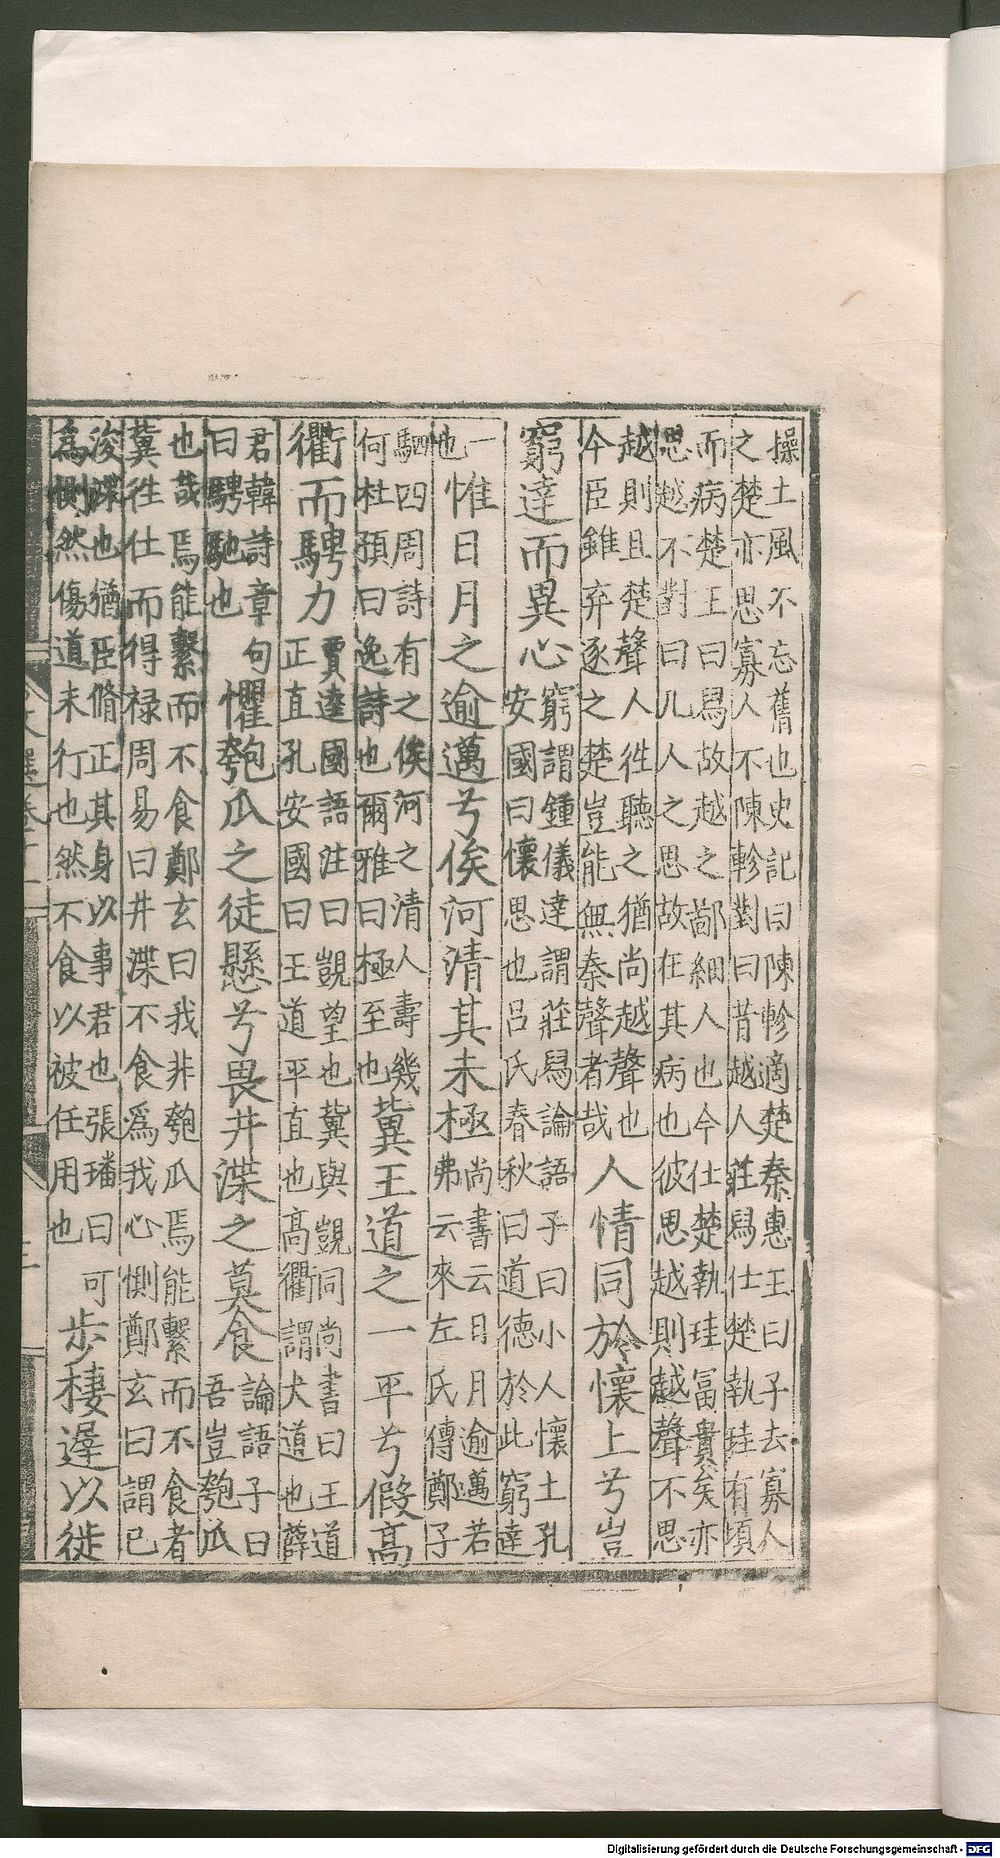 操土風不忘舊也史記曰陳軫適楚秦惠王曰子去寡人
之楚亦思寡人不陳軫對曰昔越人莊舄仕楚執珪有頃
而病楚王曰舄故越之鄙細人也今仕楚執珪冨貴矣亦
思越不對曰凡人之思故在其病也彼思越則越聲不思
越則且楚聲人徃聽之猶尚越聲也
今臣雖弃逐之楚豈能無秦聲者哉
人情同於懷土兮豈
窮達而異心
窮謂鍾儀達謂莊舄論語子曰小人懷土孔
安國曰懷思也呂氏春秋曰道德於此窮達
一
也
惟日月之逾邁兮俟河清其未極
尚書云日月逾邁若
弗云來左氏傳鄭子
駟曰周詩有之俟河之清人壽幾
何杜預曰逸詩也爾雅曰極至也
冀王道之一平兮假高
衢而騁力
賈逵國語注曰覬望也冀與覬同尚書曰王道
正直孔安國曰王道平直也高衢謂大道也薛
君韓詩章句
曰騁馳也
懼匏瓜之徒懸兮畏井渫之莫食
論語子曰
吾豈匏瓜
也哉焉能繫而不食鄭玄曰我非匏瓜焉能繫而不食者
冀徃仕而得禄周易曰井渫不食為我心惻鄭玄曰謂已
浚渫也猶臣脩正其身以事君也張璠曰可
為惻然傷道未行也然不食以被任用也
步棲遲以徙
文選卷十一